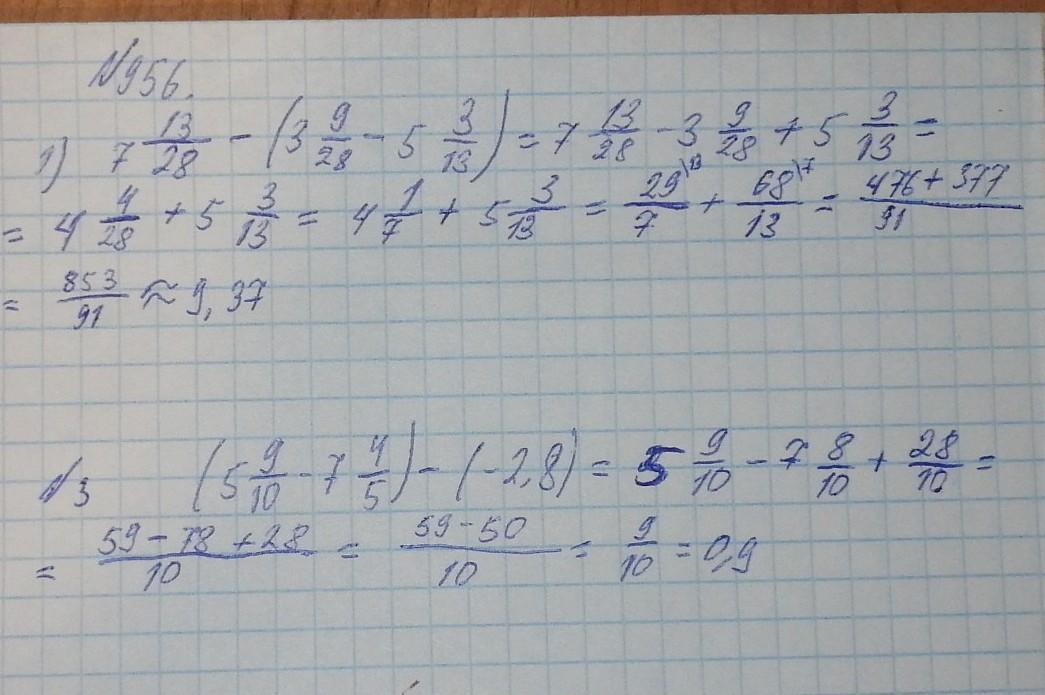 N956.
1) 7 13/28 - (3 9/28 - 5 3/13) = 7 13/28 - 3 9/28 + 5 3/13 =
= 4 4/28 + 5 3/13 = 4 1/7 + 5 3/13 = 29\13/7 + 68\7/13 = 476 + 377/91
= 853/91 ≈ 9,37
N3 (5 9/10 - 7 4/5) - (-2,8) = 5 9/10 - 7 8/10 + 28/10 =
= 59 - 78 + 28/10 = 59 - 50/10 = 9/10 = 0,9